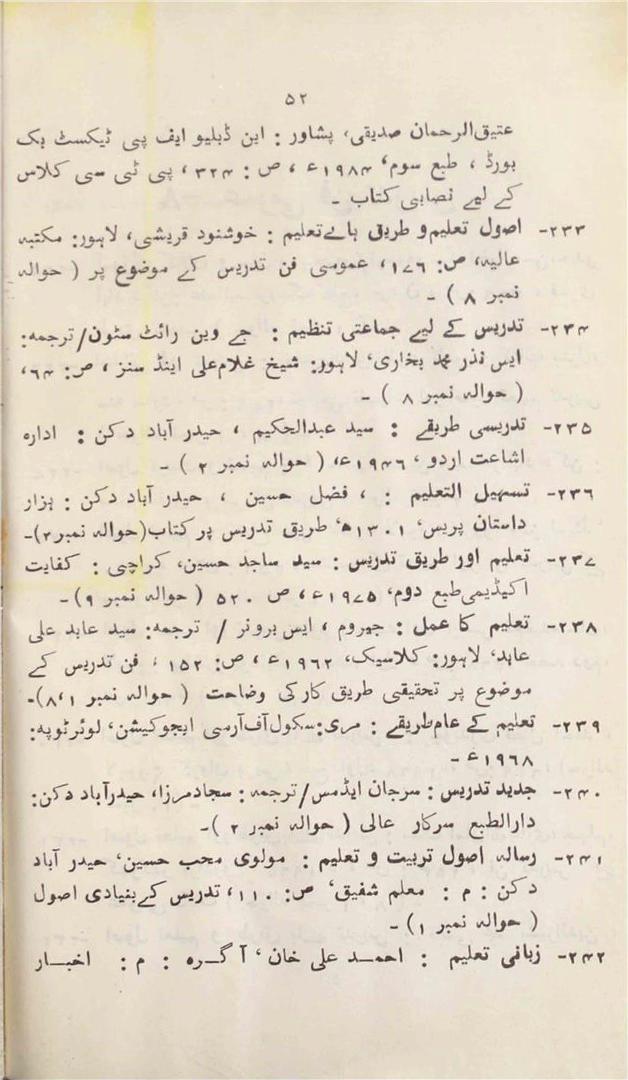 ۵۲
عتیق الرحمان صدیقی، پشاور : این ڈبلیو ایف پی ٹیکسٹ بک
بورڈ ، طبع سوم، ۱۹۸۴ء ، ص : ۳۲۴ ، پی ٹی سی کلاس
کے لیے نصابی کتاب ۔
۲۳۳- اصول تعلیم و طریق ہائے تعلیم : خوشنود قریشی، لاہور: مکتبہ
عالیہ، ص: ۱۷۶، عمومی فن تدریس کے موضوع پر ( حوالہ
نمبر ۸ ) -
۲۳۴- تدریس کے لیے جماعتی تنظیم : جے وین رائٹ سٹون/ترجمہ:
ایس نذر محمد بخاری، لاہور: شیخ غلام علی اینڈ سنز ، ص: ۶۴،
( حوالہ نمبر ۸ ) -
۲۳۵- تدریسی طریقے : سید عبدالحکیم ، حیدر آباد دکن : ادارہ
اشاعت اردو ، ۱۹۴۶ء، ( حوالہ نمبر ۲ ) -
۲۳۶- تسہیل التعلیم : ، فضل حسین ، حیدر آباد دکن : ہزار
داستان پریس، ۱۳۰۱ھ، طریق تدریس پر کتاب (حوالہ نمبر ۲)-
۲۳۷- تعلیم اور طریق تدریس : سید ساجد حسین، کراچی : کفایت
اکیڈیمی طبع دوم، ۱۹۷۵ء ، ص ۵۲۰ ( حوالہ نمبر ۹ )-
۲۳۸- تعلیم کا عمل : جیروم ، ایس برونر / ترجمہ: سید عابد علی
عابد، لاہور: کلاسیک، ۱۹۶۲ء ، ص: ۱۵۲ ، فن تدریس کے
موضوع پر تحقیقی طریق کار کی وضاحت ( حوالہ نمبر ۱،۸)-
۲۳۹- تعلیم کے عام طریقے : مری: سکول آف آرسی ایجوکیشن، لوئر ٹوپہ:
۱۹۶۸ء -
۲۴۰- جدید تدریس : سرجان ایڈمس/ترجمہ : سجاد مرزا، حیدرآباد دکن:
دارالطبع سرکار عالی ( حوالہ نمبر ۲ )-
۲۴۱- رسالہ اصول تربیت و تعلیم : مولوی محب حسین، حیدر آباد
دکن : م : معلم شفیق، ص: ۱۱۰، تدریس کے بنیادی اصول
( حوالہ نمبر ۱ ) -
۲۴۲- زبانی تعلیم : احمد علی خان ، آگرہ : م : اخبار